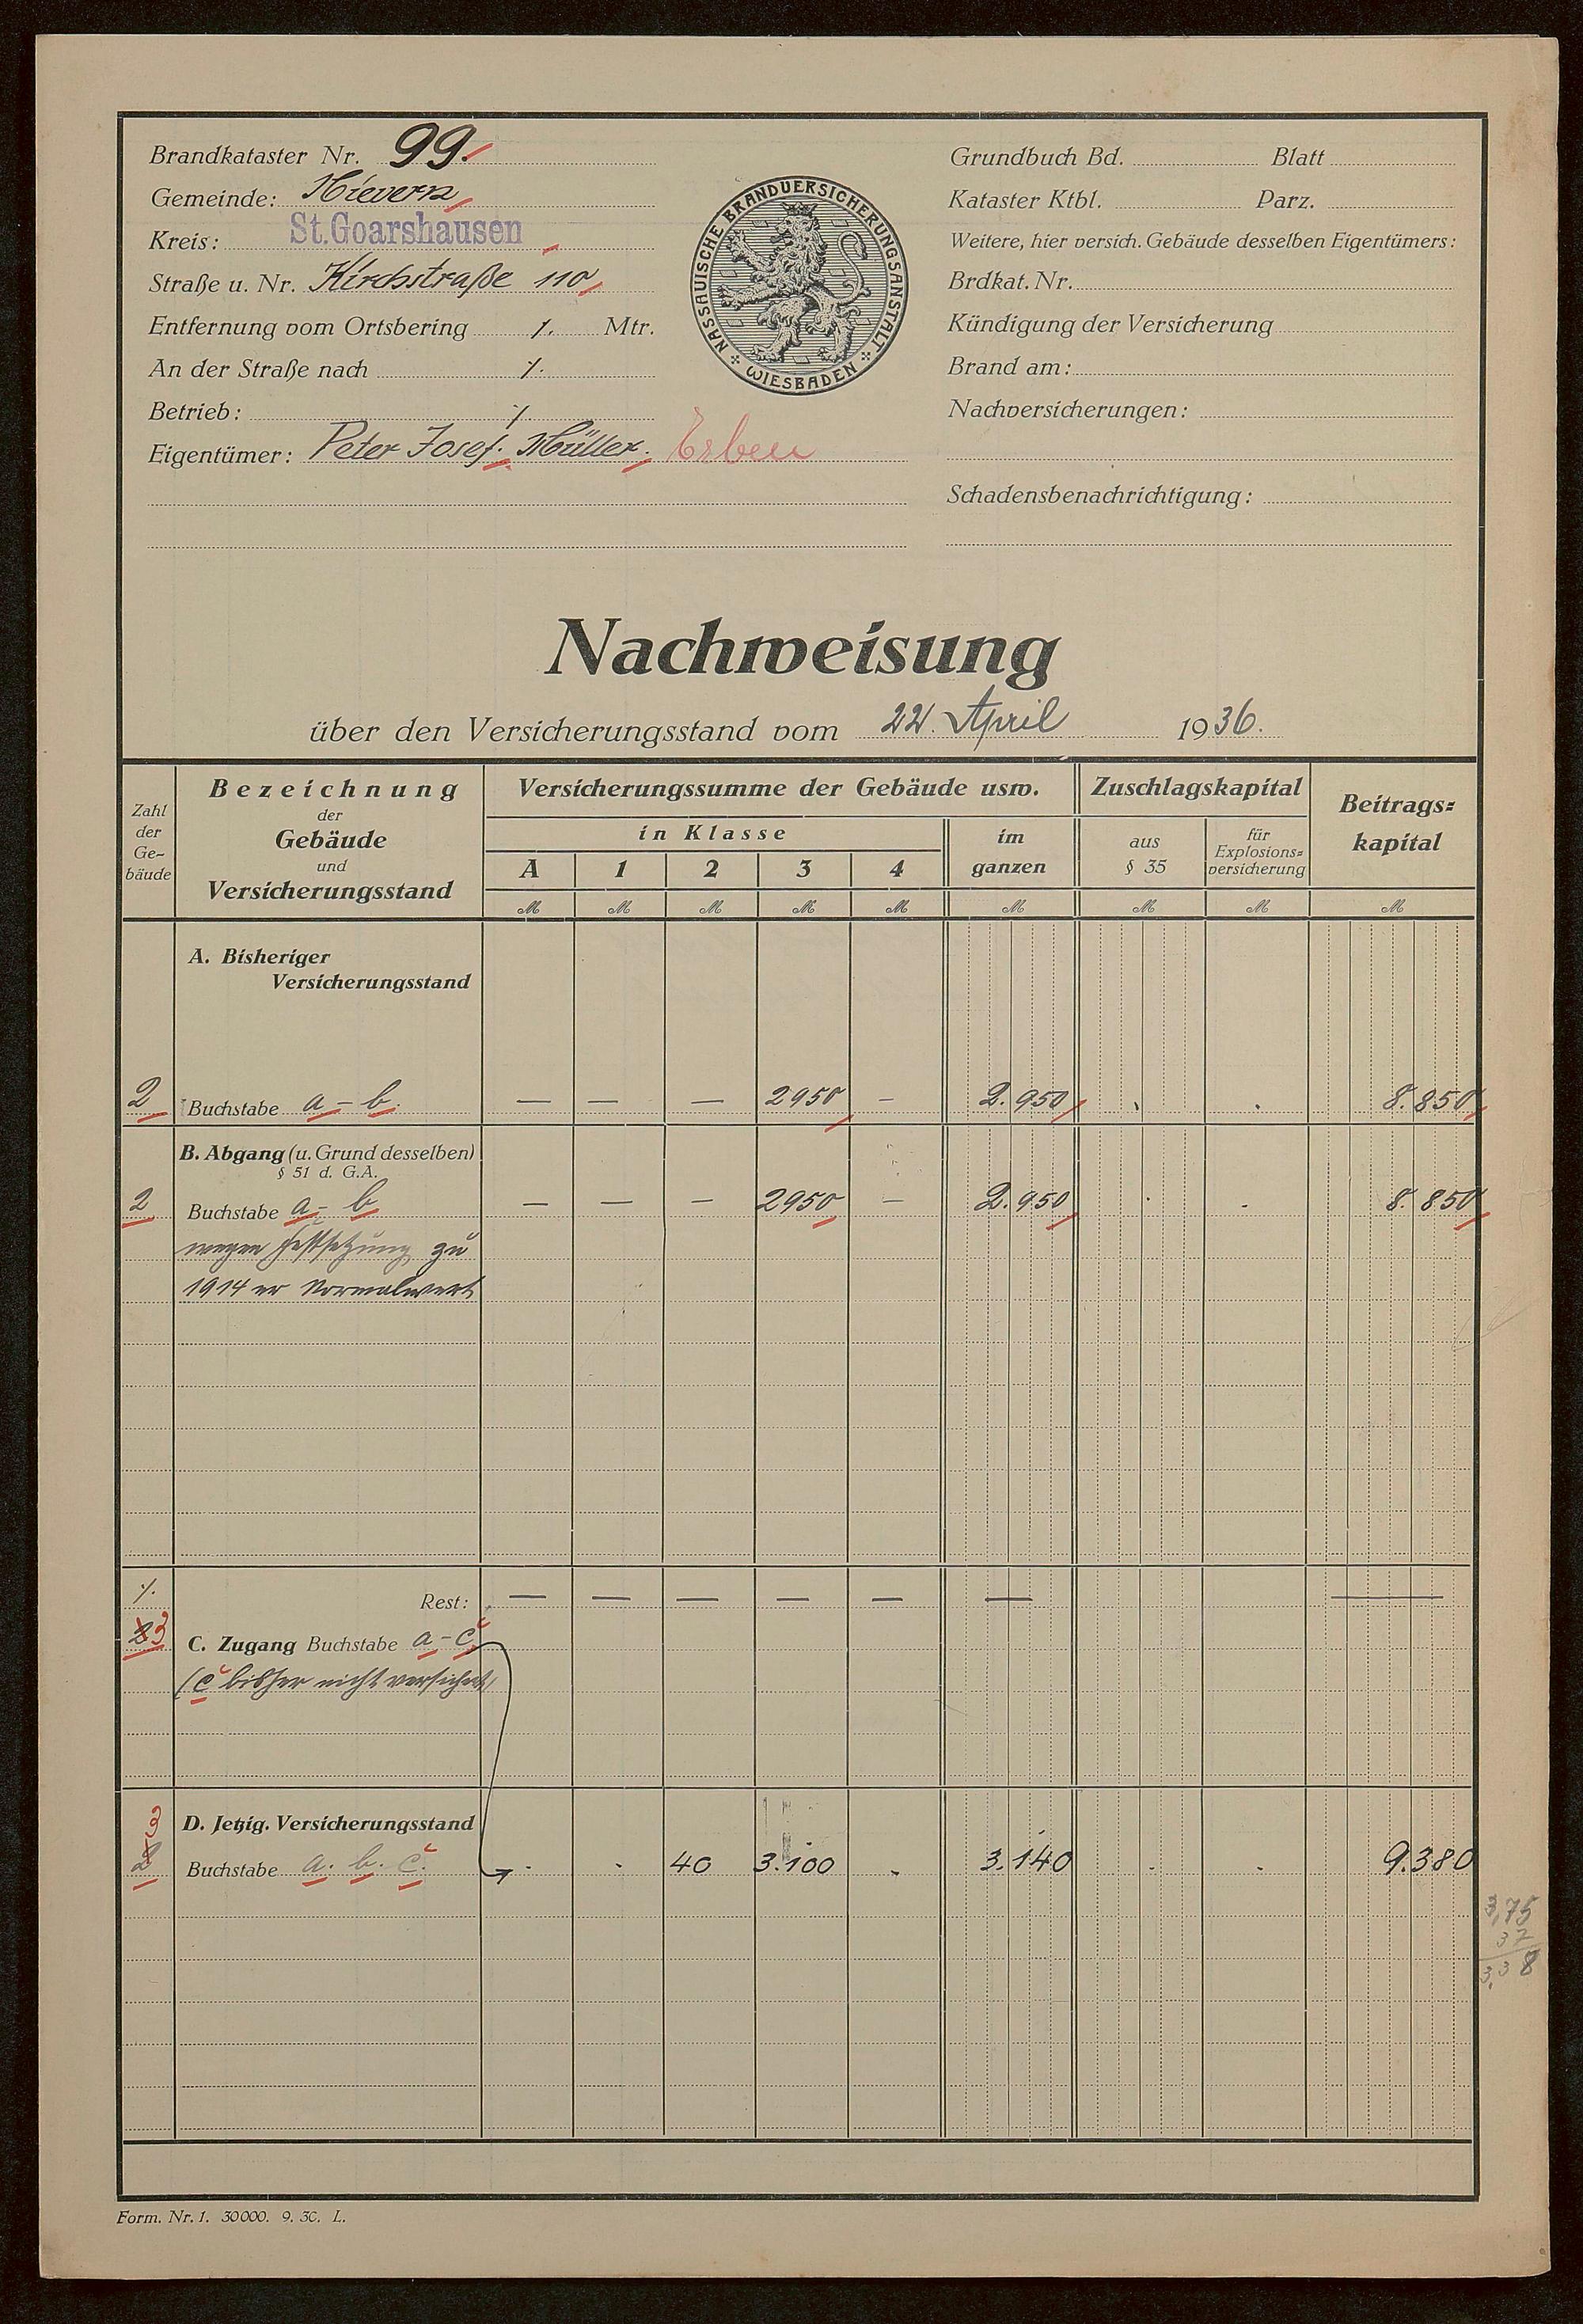 Brandkataster Nr. 99.
Gemeinde: Nievern
Kreis: St. Goarshausen
Straße u. Nr. Kirchstraße 110
Entfernung vom Ortsbering ⁒ Mtr.
An der Straße nach ⁒
Betrieb: ⁒
Eigentümer: Peter Josef Müller, Erben
NASSAUISCHE BRANDVERSICHERUNGSANSTALT
WIESBADEN
Grundbuch Bd. Blatt
Kataster Ktbl. Parz.
Weitere, hier versich. Gebäude desselben Eigentümers:
Brdkat. Nr.
Kündigung der Versicherung
Brand am:
Nachversicherungen:
Schadensbenachrichtigung:
Nachweisung
über den Versicherungsstand vom 22. April 1936.
Zahl der Ge- bäude
Bezeichnung
der
Gebäude
und
Versicherungsstand
Versicherungssumme der Gebäude usw.
in Klasse
A 1 2 3 4
im ganzen
Zuschlagskapital
aus § 35
für Explosions= versicherung
Beitrags= kapital
M M M M M M M M M
A. Bisheriger
Versicherungsstand
2 Buchstabe a – b. — — — 2950 – 2.950 . . 8.850
B. Abgang (u. Grund desselben)
§ 51 d. G.A.
2 Buchstabe a – b — — — 2950 — 2.950 . . 8.850
wegen Festsetzung zu
1914 er Normalwert
⁒ Rest: — — — — — — —
2 3 C. Zugang Buchstabe a – c
(c bisher nicht versichert)
3
D. Jetzig. Versicherungsstand
2 Buchstabe a. b. c. . . 40 3.100 . 3.140 . . 9.380
3,75
37
3,38
Form. Nr. 1. 30000. 9. 30. L.